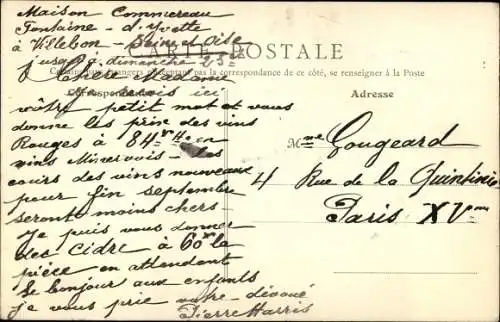 Maison Commereau
Fontaine - d'Yvette
à Villebon - Seine et Oise
jusqu'à dimanche 25
CARTE POSTALE
pas la correspondance de ce côté, se renseigner à la Poste
Correspondance
Adresse
Chère Madame
Je reçois ici
vôtre petit mot et vous
donne les prix des vins
Rouges à 84 fr Ho en
vins Minervois - les
cours des vins nouveaux
pour fin septembre
seront moins chers -
Je puis vous donner
des Cidre à 60 fr la
pièce en attendant
le bonjour aux enfants
je vous prie votre dévoué
Pierre Harris
Mme Gougeard
4 Rue de la Quintinie
Paris XVme